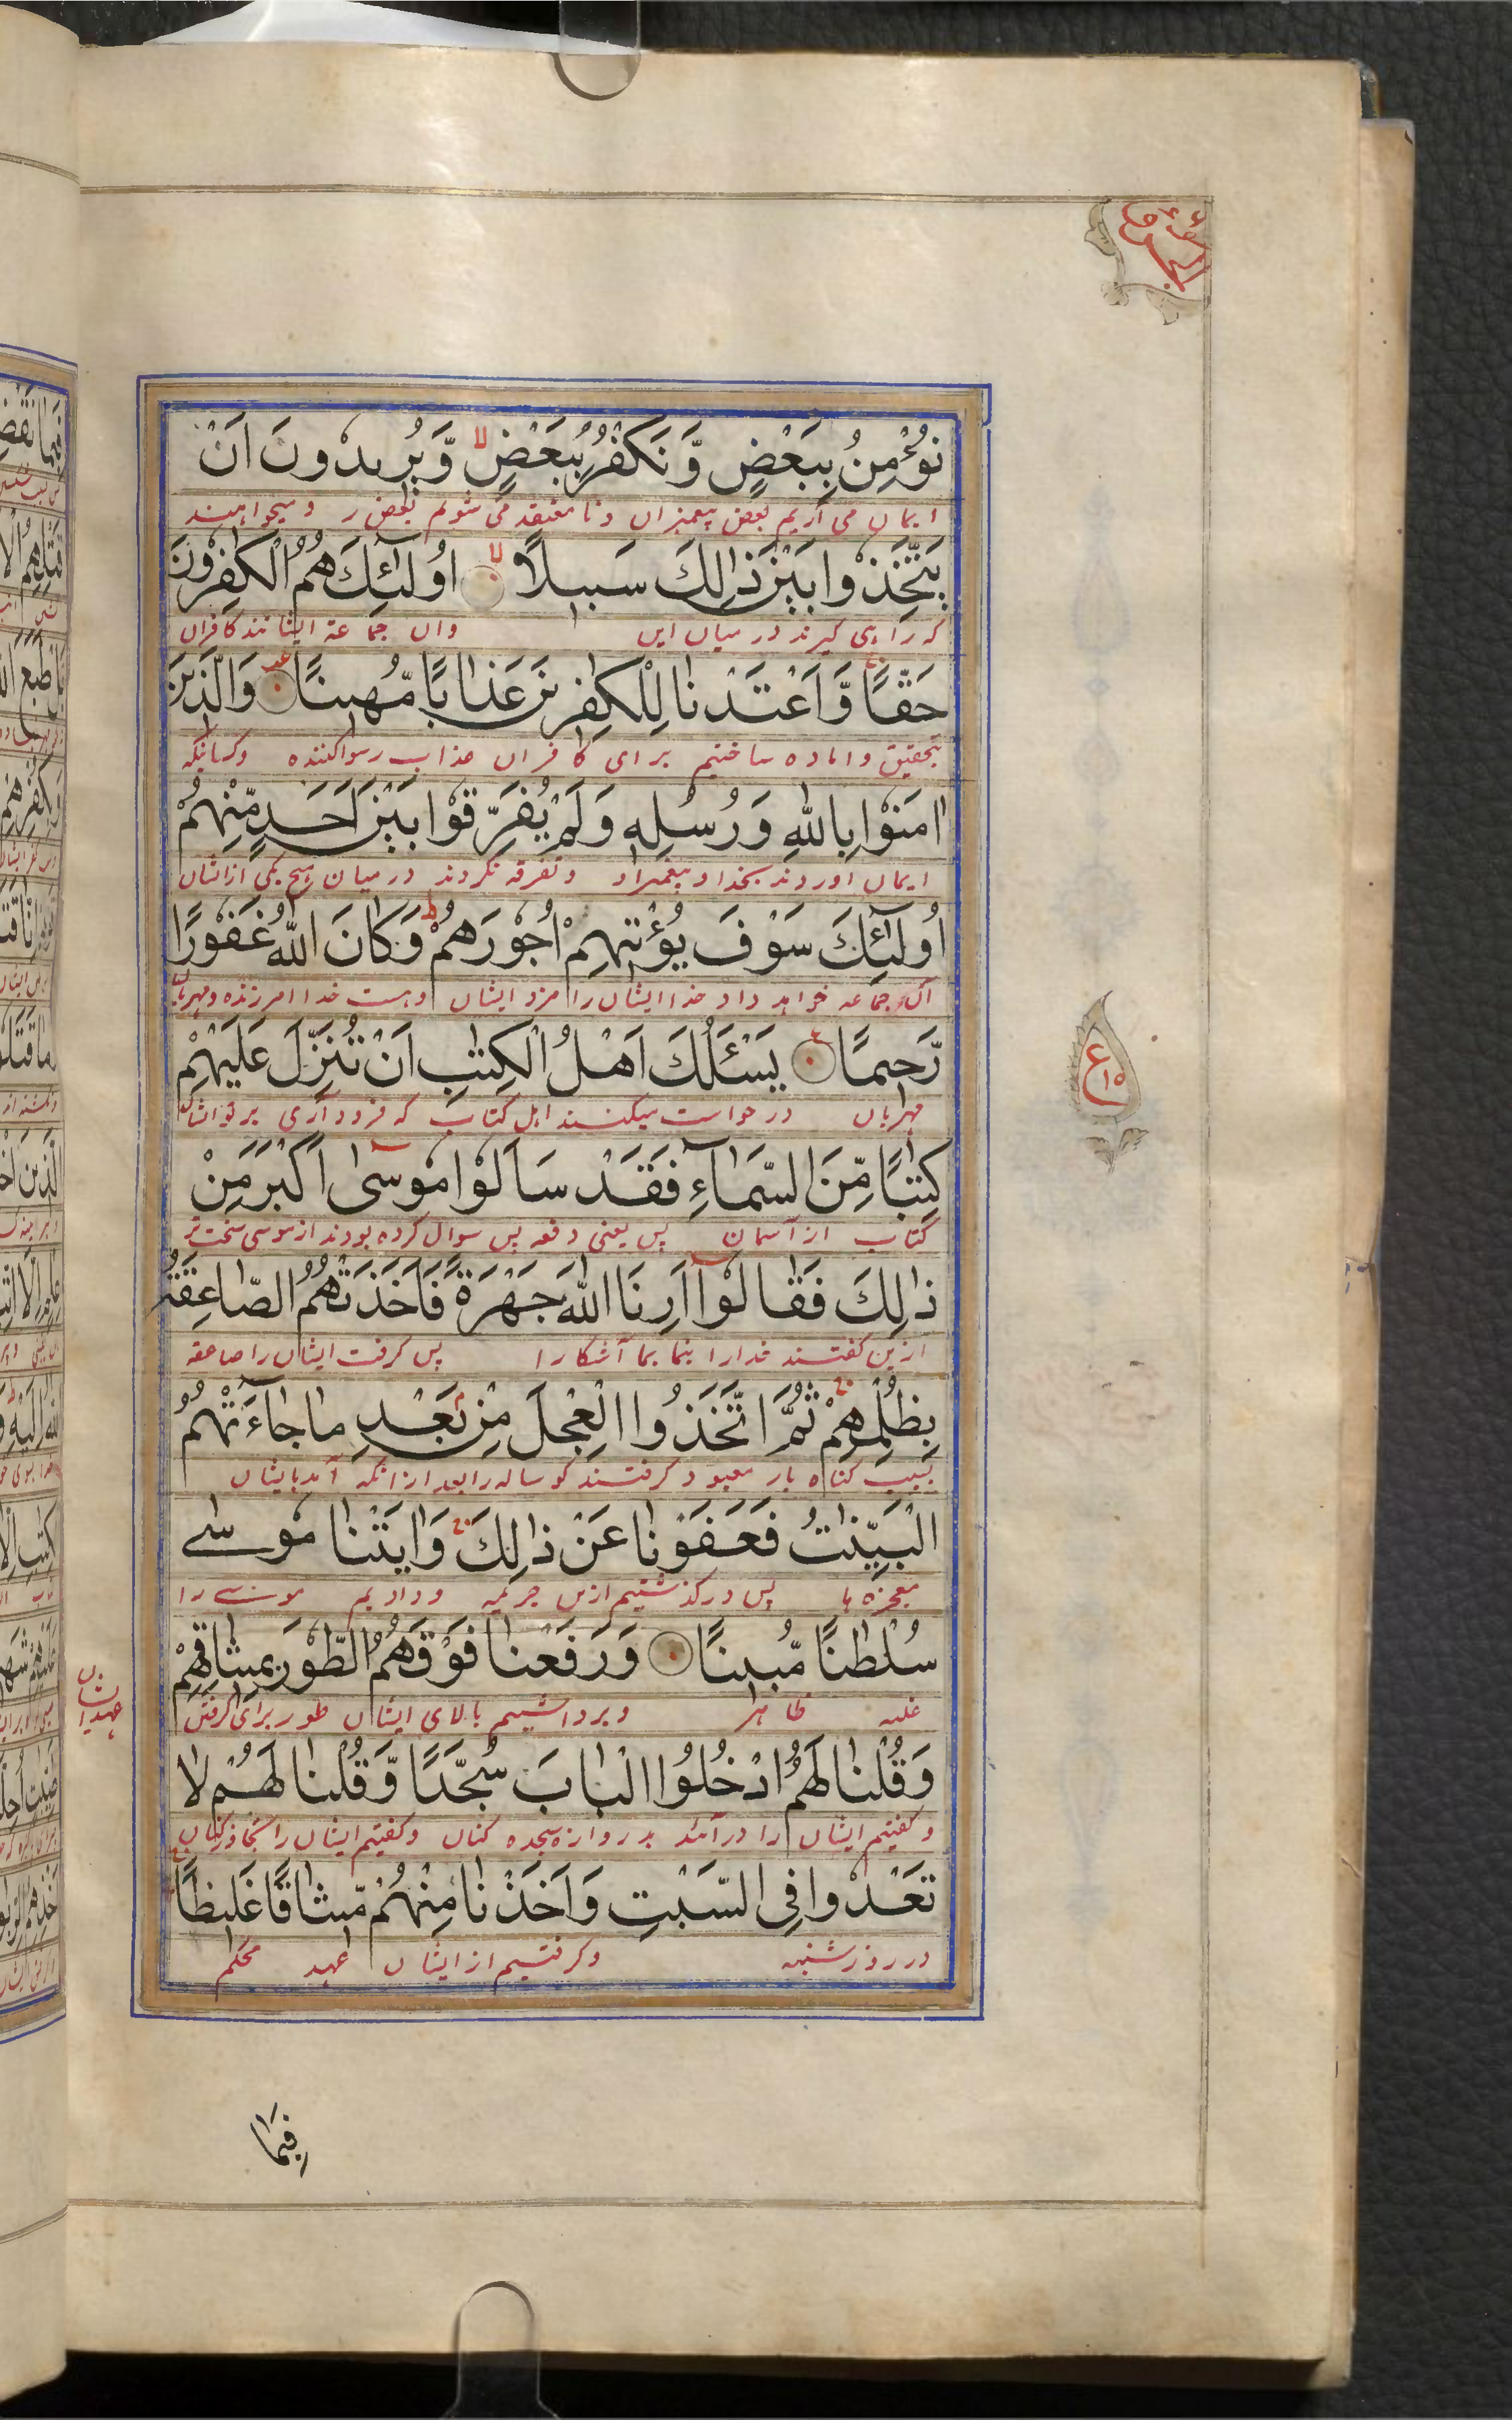 نُؤْمِنُ بِبَعْضٍ وَّنَكْفُرُ بِبَعْضٍ لا وَّيُرِيدُونَ اَنْ
ایمان می آریم ببعض پیغمبران ونا معتقد می شویم ببعض ر ومیخواهند
يَتَّخِذُوا بَيْنَ ذٰلِكَ سَبِيلًا لا اُولٰٓئِكَ هُمُ الْكٰفِرُونَ
که راهی گیرند در میان این وان جماعة ایشانند کافران
حَقًّا وَّاَعْتَدْنَا لِلْكٰفِرِينَ عَذَابًا مُّهِينًا وَالَّذِينَ
بتحقیق واماده ساختیم برای کافران عذاب رسواکننده وکسانیکه
اٰمَنُوا بِاللّٰهِ وَرُسُلِهٖ وَلَمْ يُفَرِّقُوا بَيْنَ اَحَدٍ مِّنْهُمْ
ایمان اوردند بخدا وپیغمبراو وتفرقه نکردند درمیان هیچ یکی ازایشان
اُولٰٓئِكَ سَوْفَ يُؤْتِيهِمْ اُجُورَهُمْ ط وَكَانَ اللّٰهُ غَفُورًا
آن جماعه خواهد داد خدا ایشان را مزد ایشان وهست خدا امرزنده ومهربان
رَّحِيمًا يَسْئَلُكَ اَهْلُ الْكِتٰبِ اَنْ تُنَزِّلَ عَلَيْهِمْ
مهربان درخواست میکنند اهل کتاب که فرود آری برایشان
كِتٰبًا مِّنَ السَّمَآءِ فَقَدْ سَاَلُوا مُوسٰٓى اَكْبَرَ مِنْ
کتاب از آسمان پس یعنی دفعه پس سوال کرده بودند از موسی سخت تر
ذٰلِكَ فَقَالُوٓا اَرِنَا اللّٰهَ جَهْرَةً فَاَخَذَتْهُمُ الصَّاعِقَةُ
ازین گفتند خدارا بنما بما آشکارا پس گرفت ایشان را صاعقه
بِظُلْمِهِمْ ثُمَّ اتَّخَذُوا الْعِجْلَ مِنْ بَعْدِ مَا جَآءَتْهُمُ
بسبب گناه باز معبود گرفتند گوساله را بعد ازانکه آمد بایشان
الْبَيِّنٰتُ فَعَفَوْنَا عَنْ ذٰلِكَ وَاٰتَيْنَا مُوسٰى
معجزه ها پس درگذشتیم ازین جریمه ودادیم موسے را
سُلْطٰنًا مُّبِينًا وَرَفَعْنَا فَوْقَهُمُ الطُّورَ بِمِيثَاقِهِمْ
غلبه ظاهر وبرداشتیم بالای ایشان طور برای گرفتن
عهد ایشان
وَقُلْنَا لَهُمُ ادْخُلُوا الْبَابَ سُجَّدًا وَّقُلْنَا لَهُمْ لَا
وگفتیم ایشان را درآئید بدروازه سجده کنان وگفتیم ایشان را
تَعْدُوا فِى السَّبْتِ وَاَخَذْنَا مِنْهُمْ مِّيثَاقًا غَلِيظًا
در روز شنبه وگرفتیم از ایشان عهد محکم
ع ١٥
فَبِمَا